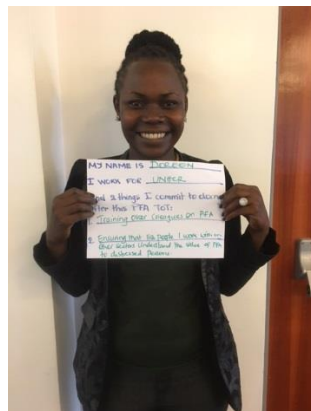 MY NAME IS DOREEN
I WORK FOR UNHCR
and 2 things I commit to doing
after this PFA ToT:
1. Training other Colleagues on PFA
2. Ensuring that the people I work with in
other sectors understand the value of PFA
to distressed Persons